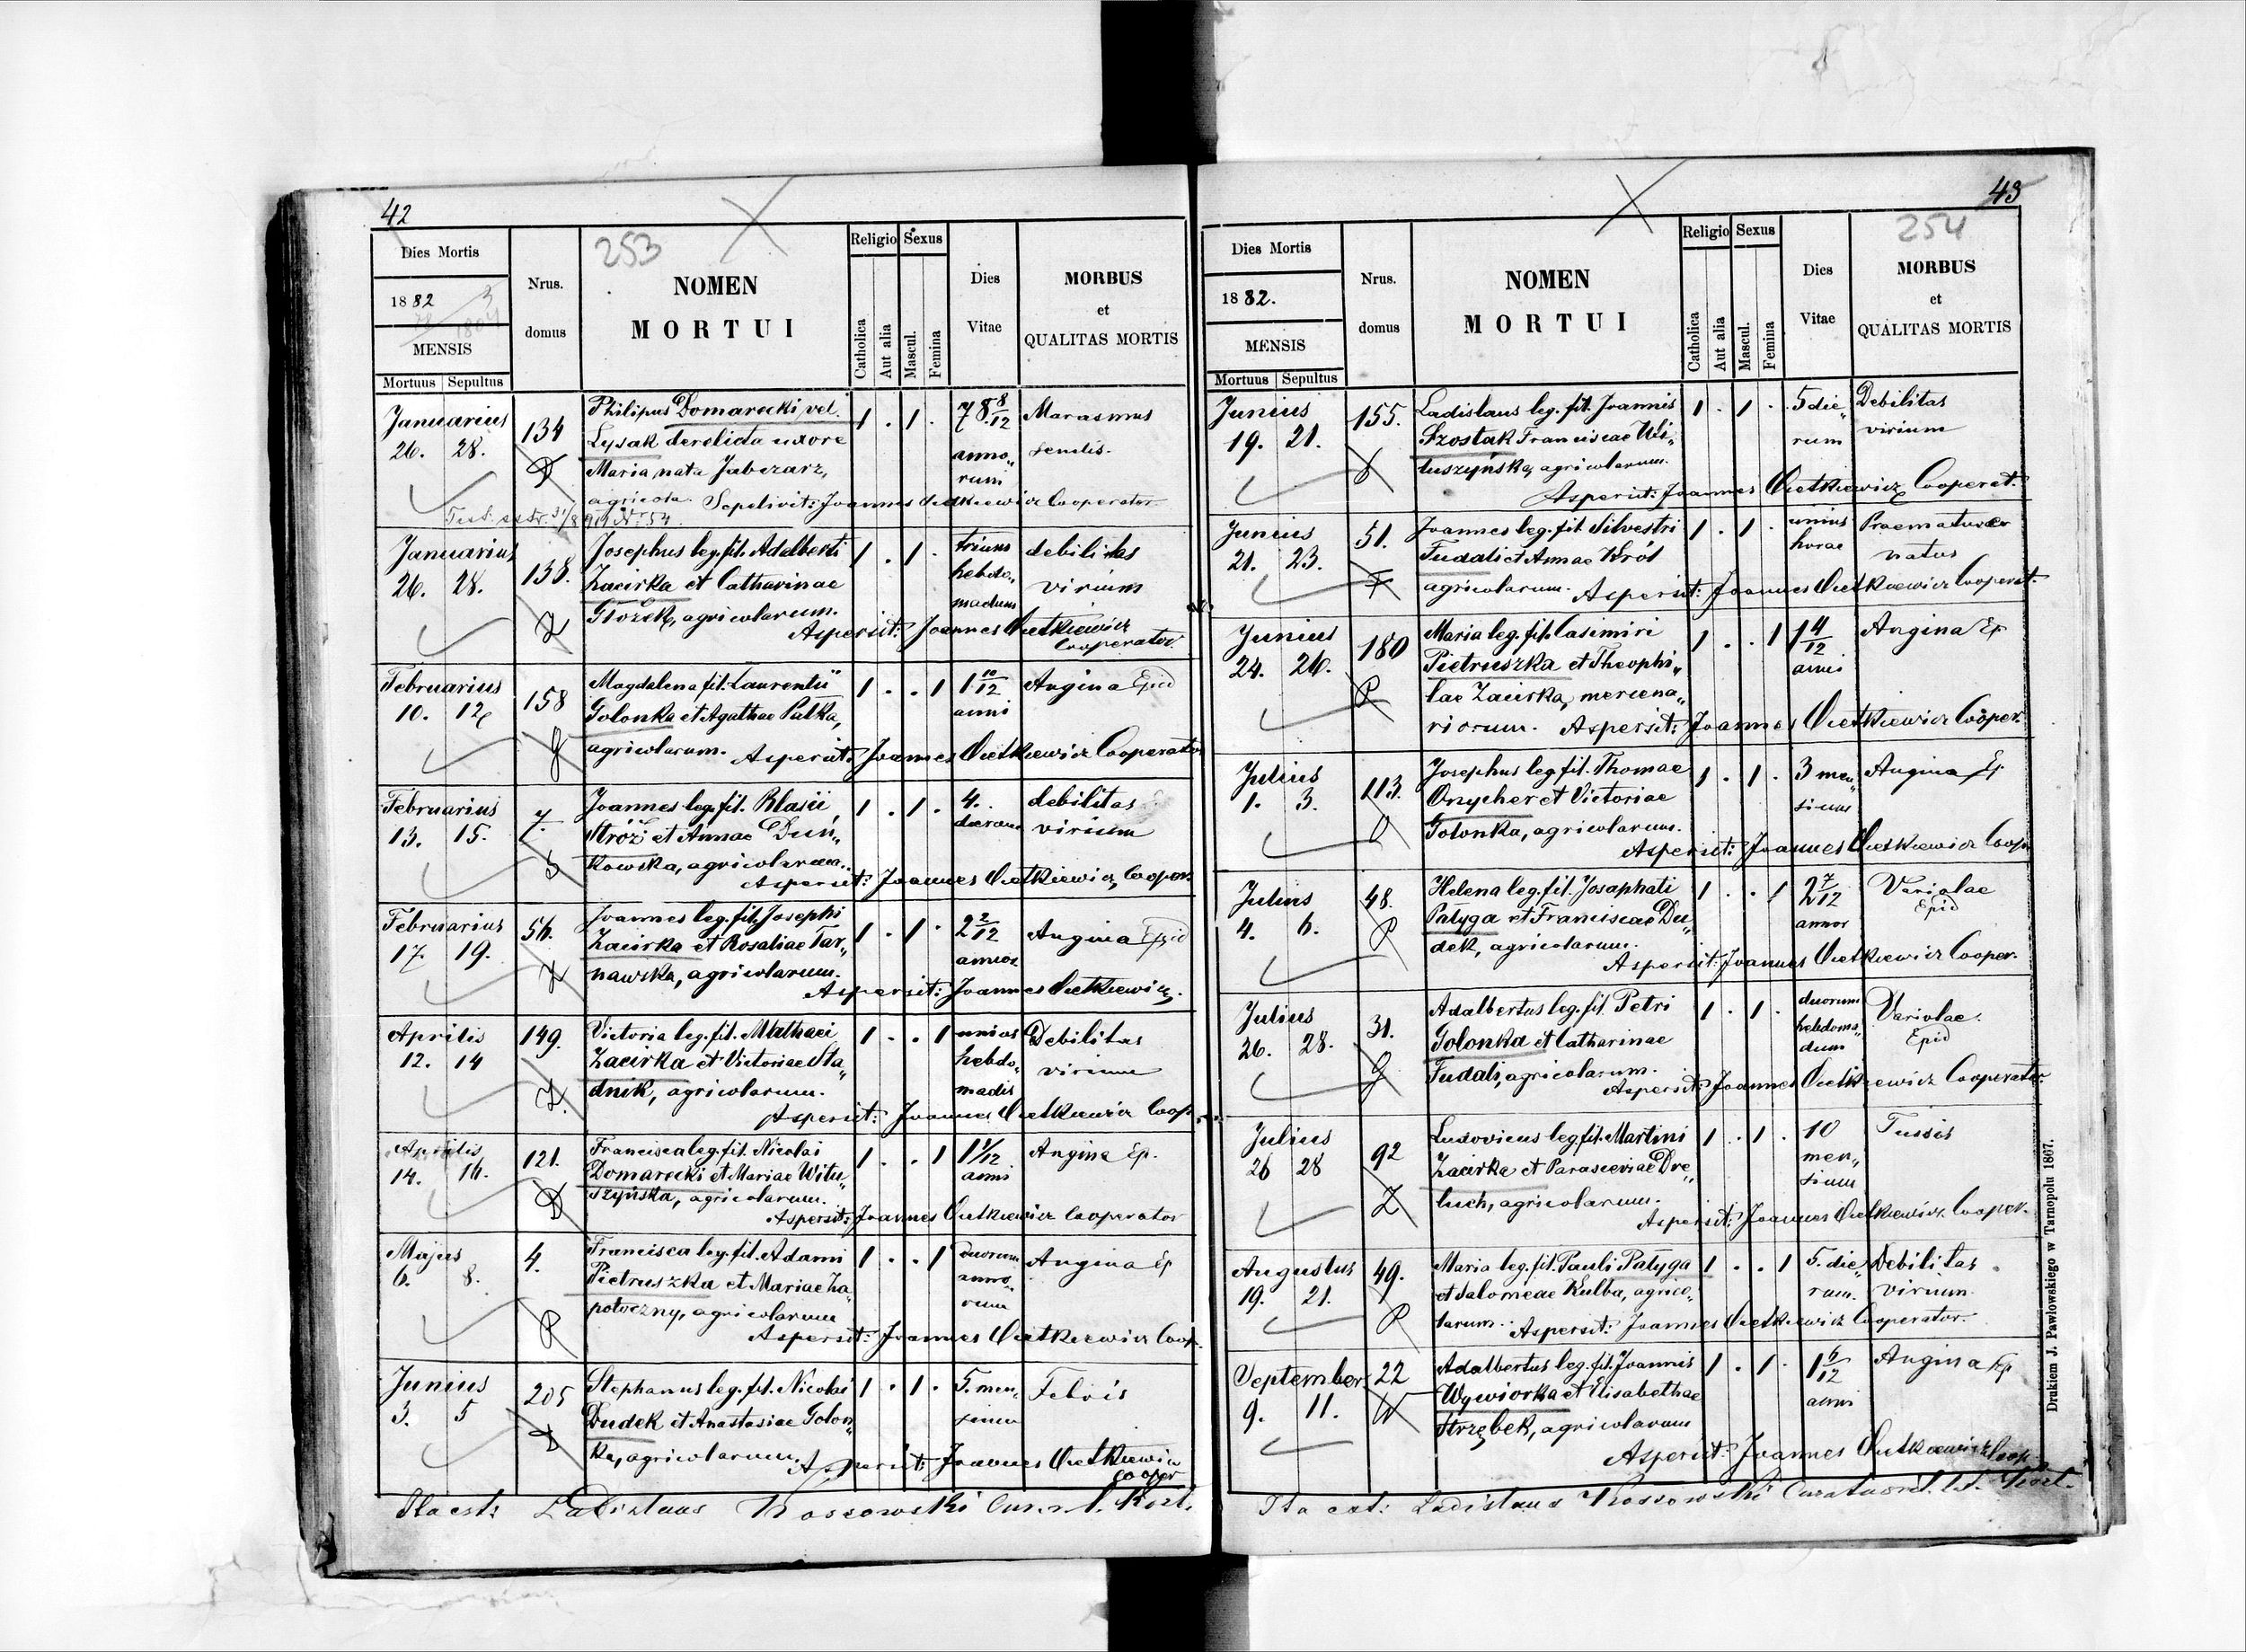 42
253
Dies Mortis
1882
MENSIS
Mortuus Sepultus
Nrus. domus
NOMEN
MORTUI
Religio
Catholica
Aut alia
Sexus
Mascul.
Femina
Dies
Vitae
MORBUS
et
QUALITAS MORTIS
Januarius
26. 28.
134
D
Philipus Domarecki, vel.
Lysak derelicta uxore
Maria nata Jabczarz,
agricola. Sepelivit: Joannes Cietkiewicz Cooperator
1 . 1 .
78 8/12
anno„
rum
Marasmus
senilis.
Januarius
26. 28.
138.
Z
Josephus leg. fil. Adalberti
Zacirka et Catharinae
Glozek, agricolarum.
Aspersit: Joannes Cietkiewicz
Cooperator
1 . 1 .
trium
hebdo„
madum
debilitas
virium
Februarius
10. 12
158
G
Magdalena fil. Laurentii
Golonka et Agathae Palka,
agricolarum. Aspersit: Joannes Cietkiewicz Cooperator
1 . . 1
1 10/12
anni
Angina Epid
Februarius
13. 15.
7.
S
Joannes leg. fil. Blasii
Stróż et Annae Duń„
kowska, agricolarum.
Aspersit: Joannes Cietkiewicz, Cooper.
1 . 1 .
4.
dierum
debilitas
virium
Februarius
17. 19.
56.
Z
Joannes leg. fil. Josephi
Zacirka et Rosaliae Tar„
nawska, agricolarum.
Aspersit: Joannes Cietkiewicz.
1 . 1 .
2 2/12
annor.
Angina Epid
Aprilis
12. 14
149.
Z.
Victoria leg. fil. Mathaei
Zacirka et Victoriae Sta„
dnik, agricolarum.
Aspersit: Joannes Cietkiewicz Coop.
1 . . 1
unius
hebdo„
madis
Debilitas
virium
Aprilis
14. 16.
121.
D
Francisca leg. fil. Nicolai
Domarecki et Mariae Witu„
szyńska, agricolarum.
Aspersit: Joannes Cietkiewicz Cooperator
1 . . 1
1 1/12
anni
Angina Ep.
Majus
6. 8.
4.
P
Francisca leg. fil. Adami
Pietruszka et Mariae Za„
potoczny, agricolarum
Aspersit: Joannes Cietkiewicz Coop.
1 . . 1
duorum
anno„
rum
Angina Ep
Junius
3. 5
205
D
Stephanus leg. fil. Nicolai
Dudek et Anastasiae Golon„
ka, agricolarum. Aspersit: Joannes Cietkiewicz
Cooper
1 . 1 .
5. men„
sium
Febris
Ita est: Ladislaus Kossowski
43
254
Dies Mortis
1882.
MENSIS
Mortuus Sepultus
Nrus.
domus
NOMEN
MORTUI
Religio
Catholica
Aut alia
Sexus
Mascul.
Femina
Dies
Vitae
MORBUS
et
QUALITAS MORTIS
Junius
19. 21.
155.
S
Ladislaus leg. fil. Joannis
Szostak Franciscae Wi„
tuszyńska, agricolarum.
Aspersit: Joannes Cietkiewicz Cooperat.
1 . 1 .
5 die„
rum
Debilitas
virium
Junius
21. 23.
51.
F
Joannes leg. fil. Silvestri
Fudali et Annae Król
agricolarum. Aspersit: Joannes Cietkiewicz Cooperat.
1 . 1 .
unius
horae
Praemature
natus
Junius
24. 26.
180
P
Maria leg. fil. Casimiri
Pietruszka et Theophi„
lae Zacirka, mercena„
riorum. Aspersit: Joannes Cietkiewicz Cooper.
1 . . 1
1 4/12
anni
Angina Ep
Julius
1. 3.
113.
O
Josephus leg. fil. Thomae
Onycher et Victoriae
Golonka, agricolarum.
Aspersit: Joannes Cietkiewicz Coop.
1 . 1 .
3 men„
sium
Angina Ep
Julius
4. 6.
48.
P
Helena leg. fil. Josaphati
Patyga et Franciscae Du„
dek, agricolarum.
Aspersit: Joannes Cietkiewicz Cooper.
1 . . 1
2 7/12
annor
Variolae
Epid
Julius
26. 28.
31.
G
Adalbertus leg. fil. Petri
Golonka et Catharinae
Fudali, agricolarum.
Aspersit: Joannes Cietkiewicz Cooperator
1 . 1 .
duorum
hebdoma„
dum
Variolae.
Epid
Julius
26 28
92
Z
Ludovicus leg. fil. Martini
Zacirka et Parasceviae Dre„
luch, agricolarum.
Aspersit: Joannes Cietkiewicz Cooper.
1 . 1 .
10
men„
sium
Tussis
Augustus
19. 21.
49.
P
Maria leg. fil. Pauli Patyga
et Salomeae Kulba, agrico„
larum. Aspersit: Joannes Cietkiewicz Cooperator.
1 . . 1
5. die„
rum.
Debilitas
virium
September
9. 11.
22
W
Adalbertus leg. fil. Joannis
Wywiorka et Elisabethae
Strzębek, agricolarum
Aspersit: Joannes Cietkiewicz Coop.
1 . 1 .
1 6/12
anni
Angina Ep
Ita est: Ladislaus Kossowski
Drukiem J. Pawłowskiego w Tarnopolu 1867.